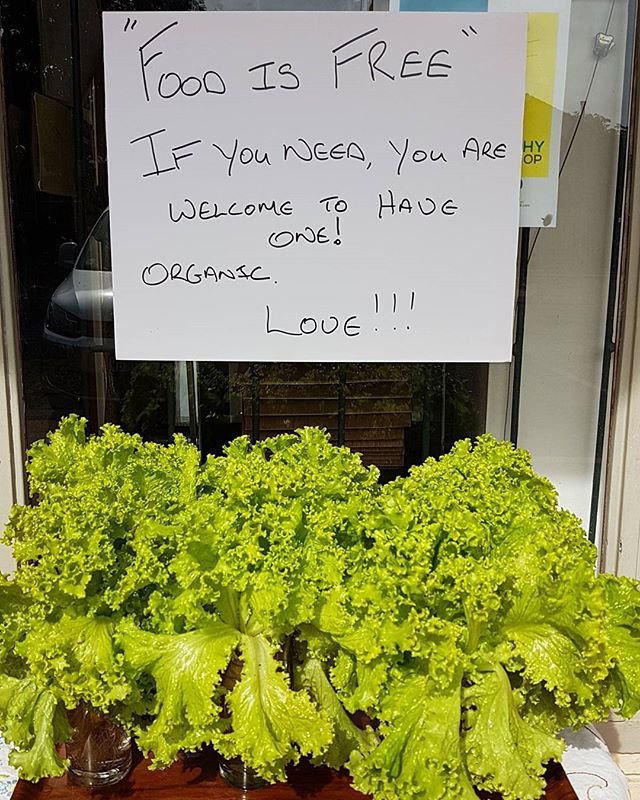 "FOOD IS FREE"
IF YOU NEED, YOU ARE
WELCOME TO HAVE
ONE!
ORGANIC.
LOVE!!!
HY
OP